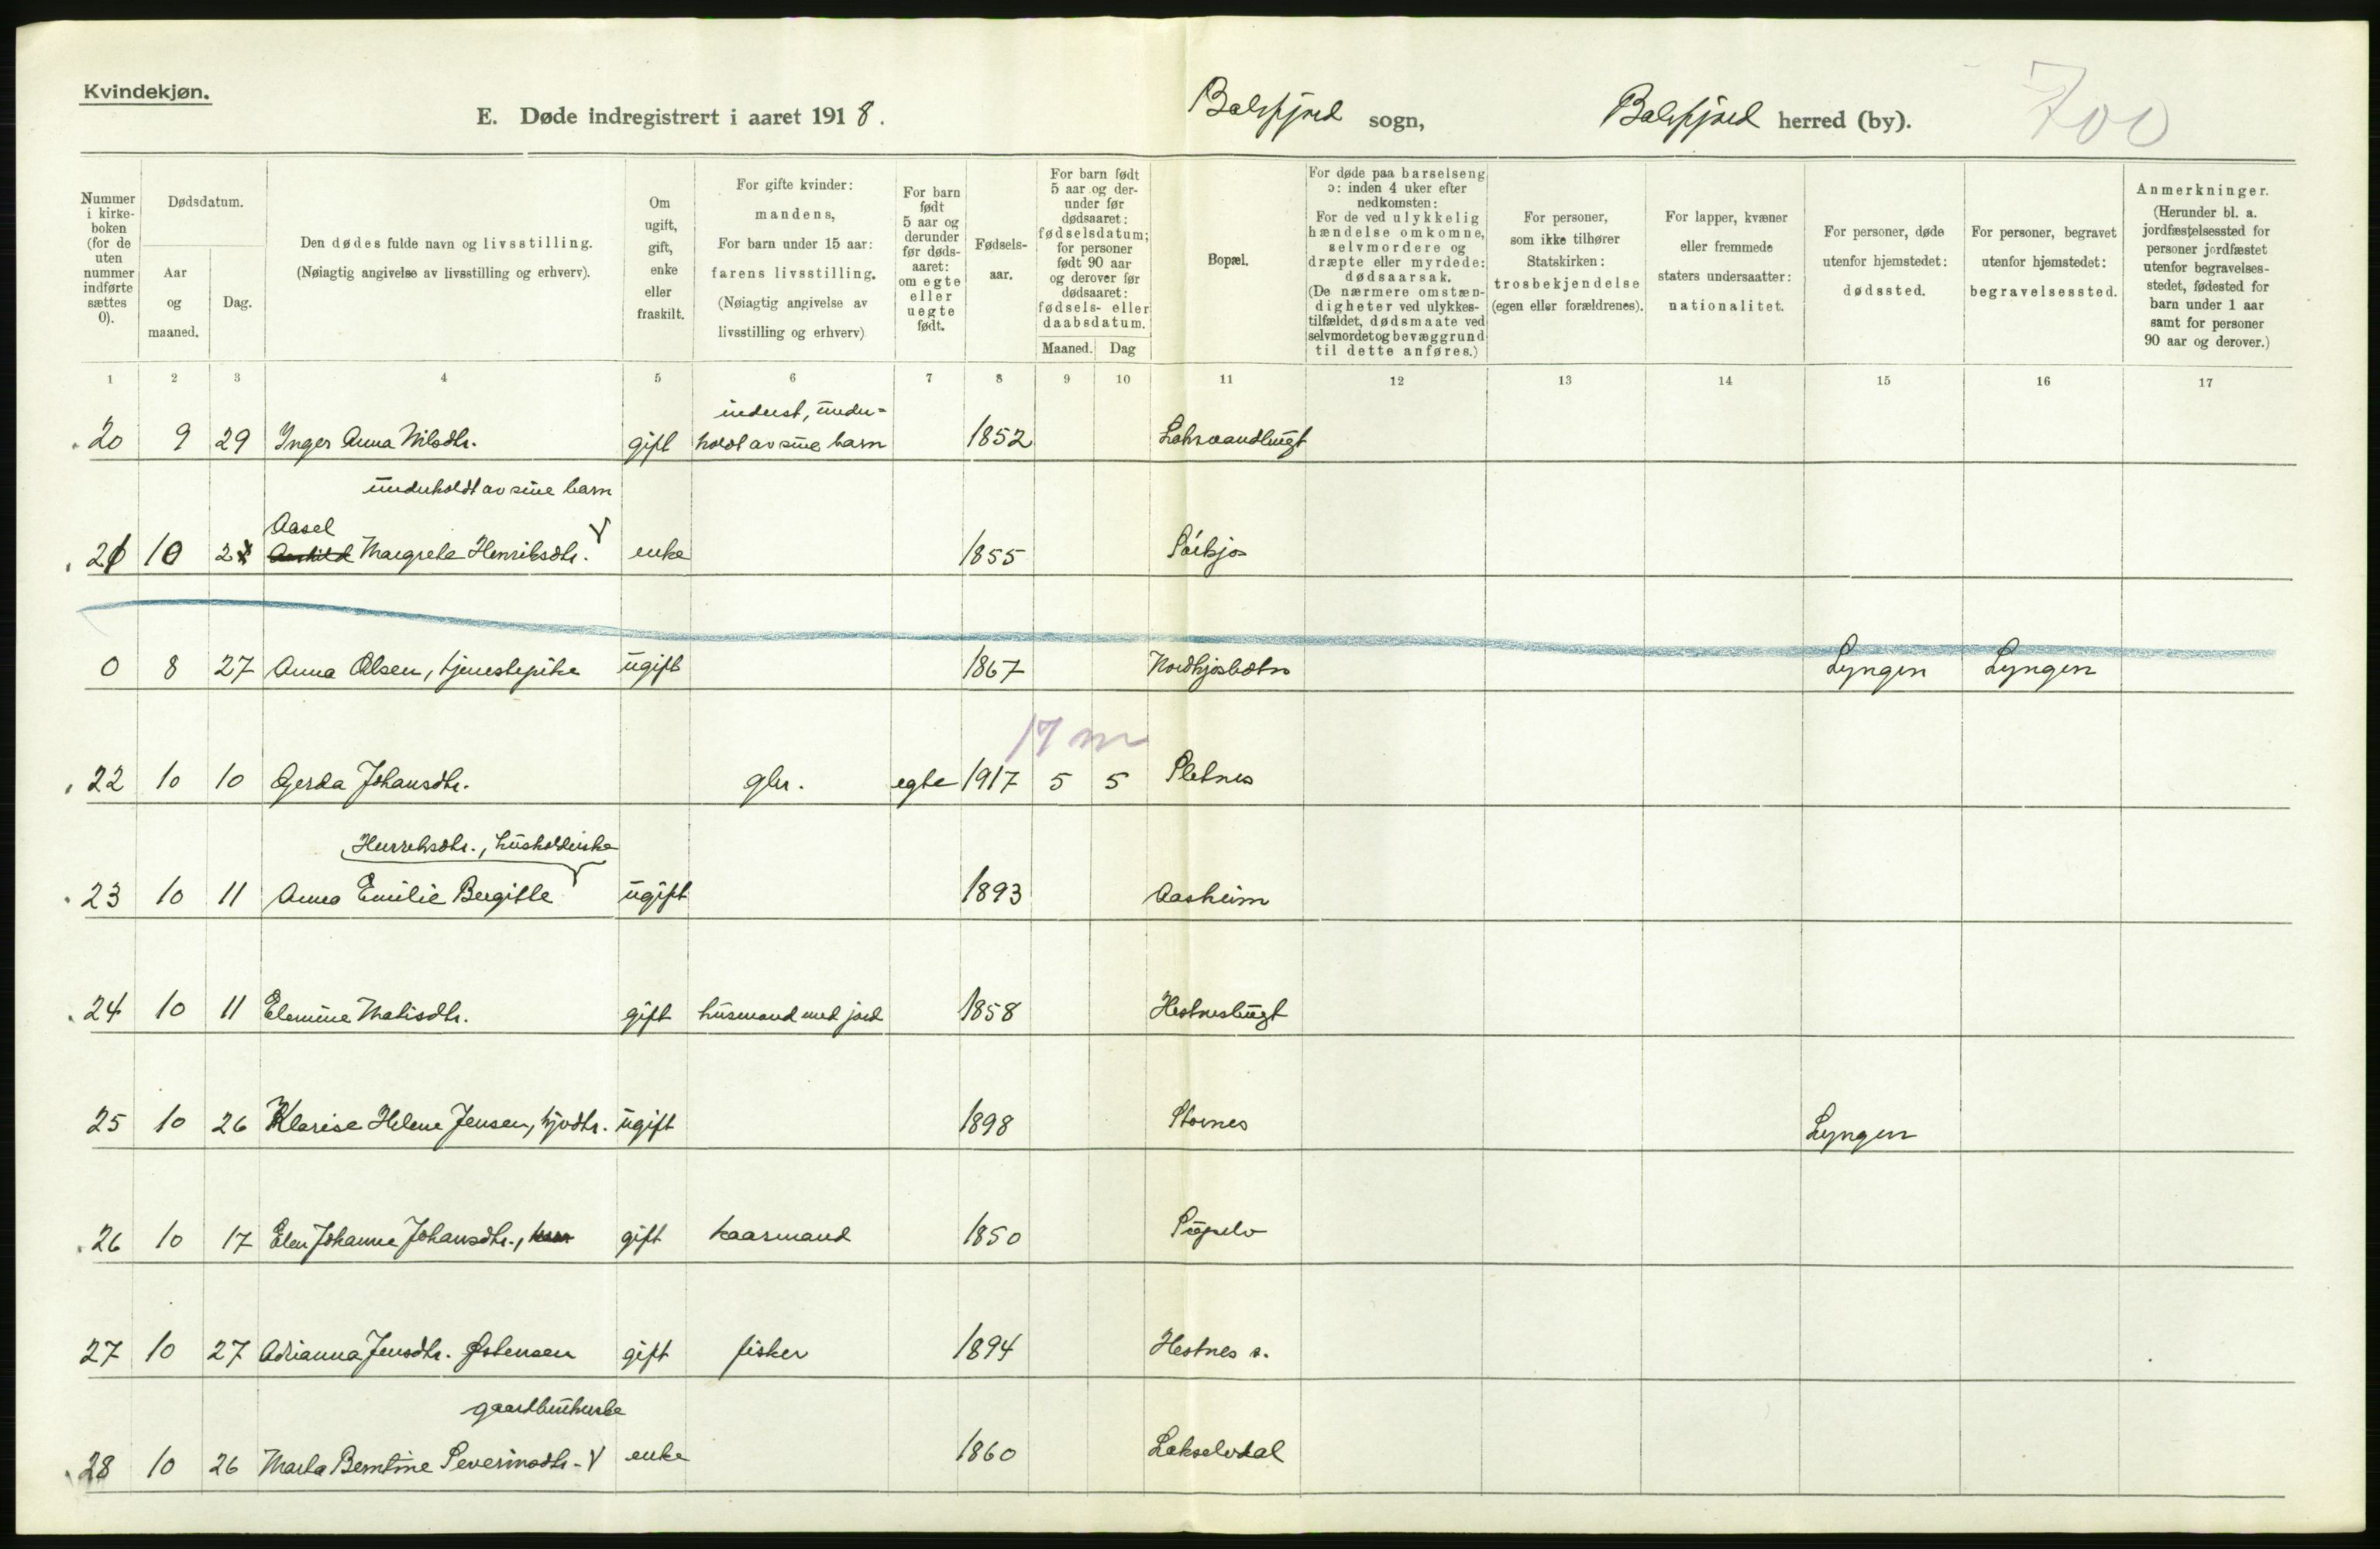 Kvindekjøn.
E. Døde indregistrert i aaret 1918.
Balsfjord sogn,
Balsfjord herred (by).
700
Nummer i kirkeboken (for de uten nummer indførte sættes 0).
Dødsdatum.
Aar og maaned.
Dag.
Den dødes fulde navn og livsstilling.
(Nøiagtig angivelse av livsstilling og erhverv).
Om ugift, gift, enke eller fraskilt.
For gifte kvinder: mandens,
For barn under 15 aar: farens livsstilling.
(Nøiagtig angivelse av livsstilling og erhverv)
For barn født 5 aar og derunder før dødsaaret: om egte eller uegte født.
Fødselsaar.
For barn født 5 aar og derunder før dødsaaret: fødselsdatum; for personer født 90 aar og derover før dødsaaret: fødsels- eller daabsdatum.
Maaned. Dag
Bopæl.
For døde paa barselseng ɔ: inden 4 uker efter nedkomsten:
For de ved ulykkelig hændelse omkomne, selvmordere og dræpte eller myrdede: dødsaarsak.
(De nærmere omstændigheter ved ulykkestilfældet, dødsmaate ved selvmordet og bevæggrund til dette anføres.)
For personer, som ikke tilhører Statskirken: trosbekjendelse (egen eller forældrenes).
For lapper, kvæner eller fremmede staters undersaatter: nationalitet.
For personer, døde utenfor hjemstedet: dødssted.
For personer, begravet utenfor hjemstedet: begravelsessted.
Anmerkninger.
(Herunder bl. a. jordfæstelsessted for personer jordfæstet utenfor begravelsesstedet, fødested for barn under 1 aar samt for personer 90 aar og derover.)
1 2 3 4 5 6 7 8 9 10 11 12 13 14 15 16 17
inderst, under=
20 9 29 Inger Anna Nilsdtr. gift holdt av sine barn 1852
underholdt av sine barn
Aasel
21 10 2 Margrete Henriksdtr. enke 1855
0 8 27 Anna Olsen, tjenestepike ugift 1867 Nordkjosbotn Lyngen Lyngen
17 m
22 10 10 Gerda Johansdtr. gbr. egte 1917 5 5 Sletnes
husholderske
23 10 11 Anna Emilie Bergitte ugift 1893 Aasheim
24 10 11 Elemine Matisdtr. gift husmand med jord 1858 Hestnesbugt
25 10 26 Klarise Helene Jensen, hjvdtr. ugift 1898 Stornes Lyngen
26 10 17 Elen Johanne Johansdtr., gift kaarmand 1850
27 10 27 Adrianna Jensdtr. Østensen gift fisker 1894 Hestnes s.
28 10 26 Marta Berntine Severinsdtr. enke 1860 Lakselvdal